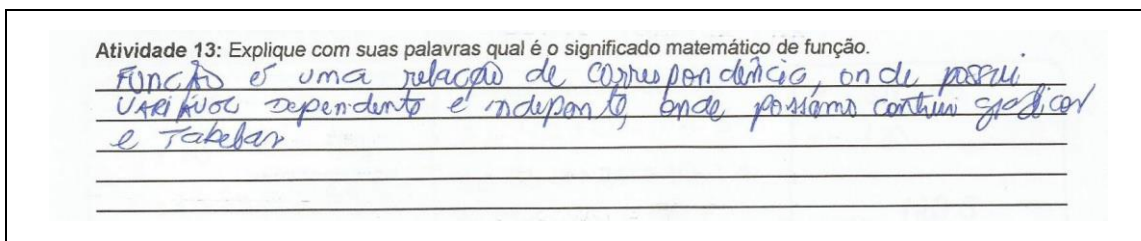 Atividade 13: Explique com suas palavras qual é o significado matemático de função.
FUNCÃO é uma relacção de correspondência, onde possui
VARIÁVOL Dependente e indepente, onde possamos contruir graficos
e Tabelas